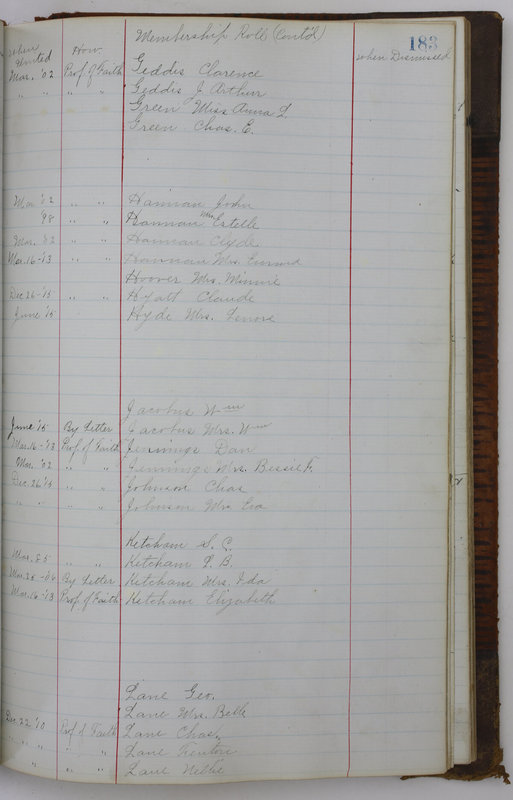 183
Membership Roll (Cont'd)
When United How. When Dismissed
Mar. '02 Prof. of Faith Geddis Clarence
" " " " Geddis J Arthur
Green Miss Anna L
Green Chas. E.
Mar '02 " " Hannan John
'98 " " Hannan Mrs Estelle
Mar. '02 " " Hannan Clyde
Mar. 16-'13 " " Hannan Mrs.
Hoover Mrs. Minnie
Dec 26-'15 " " Hyatt Claude
June '15 Hyde Mrs. Lenore
Jacobus Wm
June '15 By Letter Jacobus Mrs. Wm
Mar. 16-'13 Prof. of Faith Jennings Dan
Mar. '02 " " Jennings Mrs. Bessie F.
Dec. 26 '15 " " Johnson Chas
" " " " Johnson Mrs Eva
Ketcham S. C.
Mar. 85 " " Ketcham P. B.
Mar. 25-'06 By Letter Ketcham Mrs. Ida
Mar. 16 '13 Prof. of Faith Ketcham Elizabeth
Lane Geo.
Lane Mrs. Belle
Dec. 22, '10 Prof. of Faith Lane Chas.
" " " " " Lane
" " " Lane Nellie